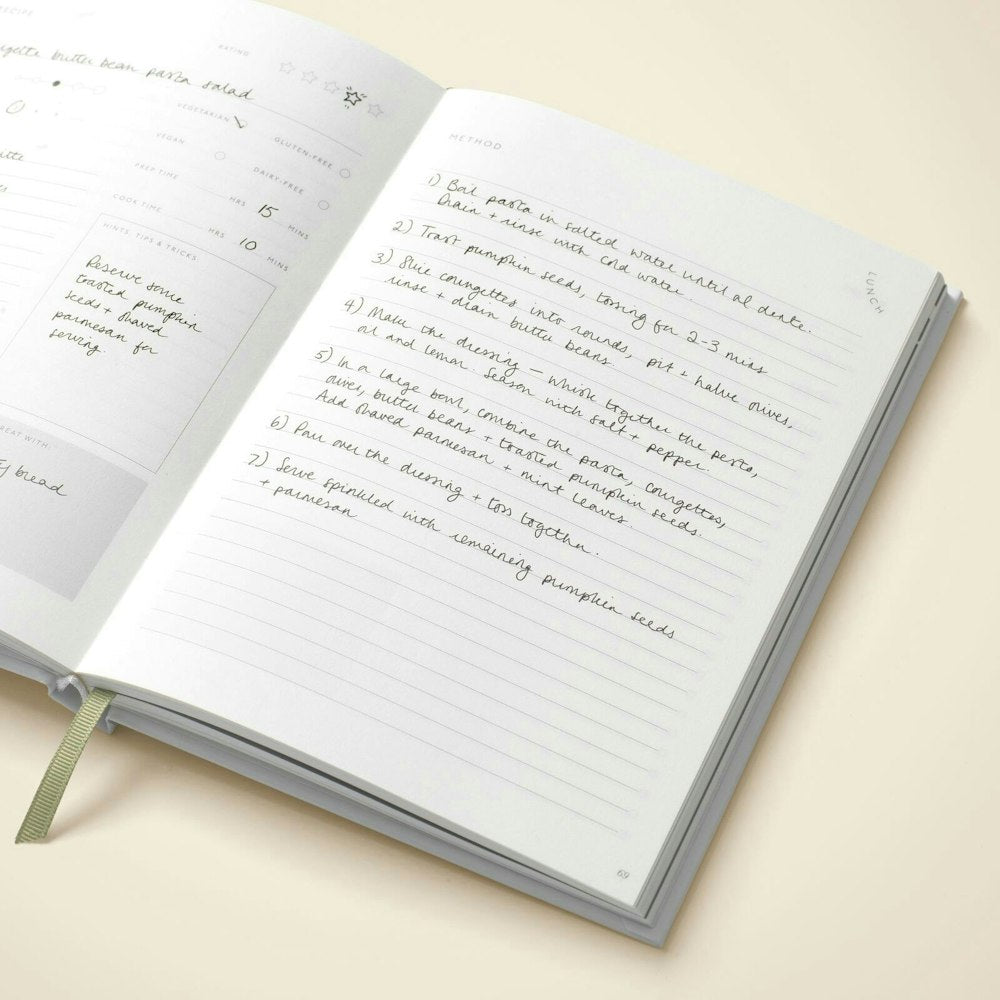 RECIPE
butter bean pasta salad
RATING
VEGETARIAN
GLUTEN-FREE
VEGAN
DAIRY-FREE
PREP TIME
HRS 15 MINS
COOK TIME
HRS 10 MINS
HINTS, TIPS & TRICKS
Reserve some
toasted pumpkin
seeds + shaved
parmesan for
serving.
EAT WITH:
bread
METHOD
1) Boil pasta in salted water until al dente.
Drain + rinse with cold water.
2) Toast pumpkin seeds, tossing for 2-3 mins
3) Slice courgettes into rounds, pit + halve olives,
rinse + drain butter beans.
4) Make the dressing — whisk together the pesto,
oil and lemon. Season with salt + pepper.
5) In a large bowl, combine the pasta, courgettes,
olives, butter beans + toasted pumpkin seeds.
Add shaved parmesan + mint leaves.
6) Pour over the dressing + toss together.
7) Serve sprinkled with remaining pumpkin seeds
+ parmesan
LUNCH
69